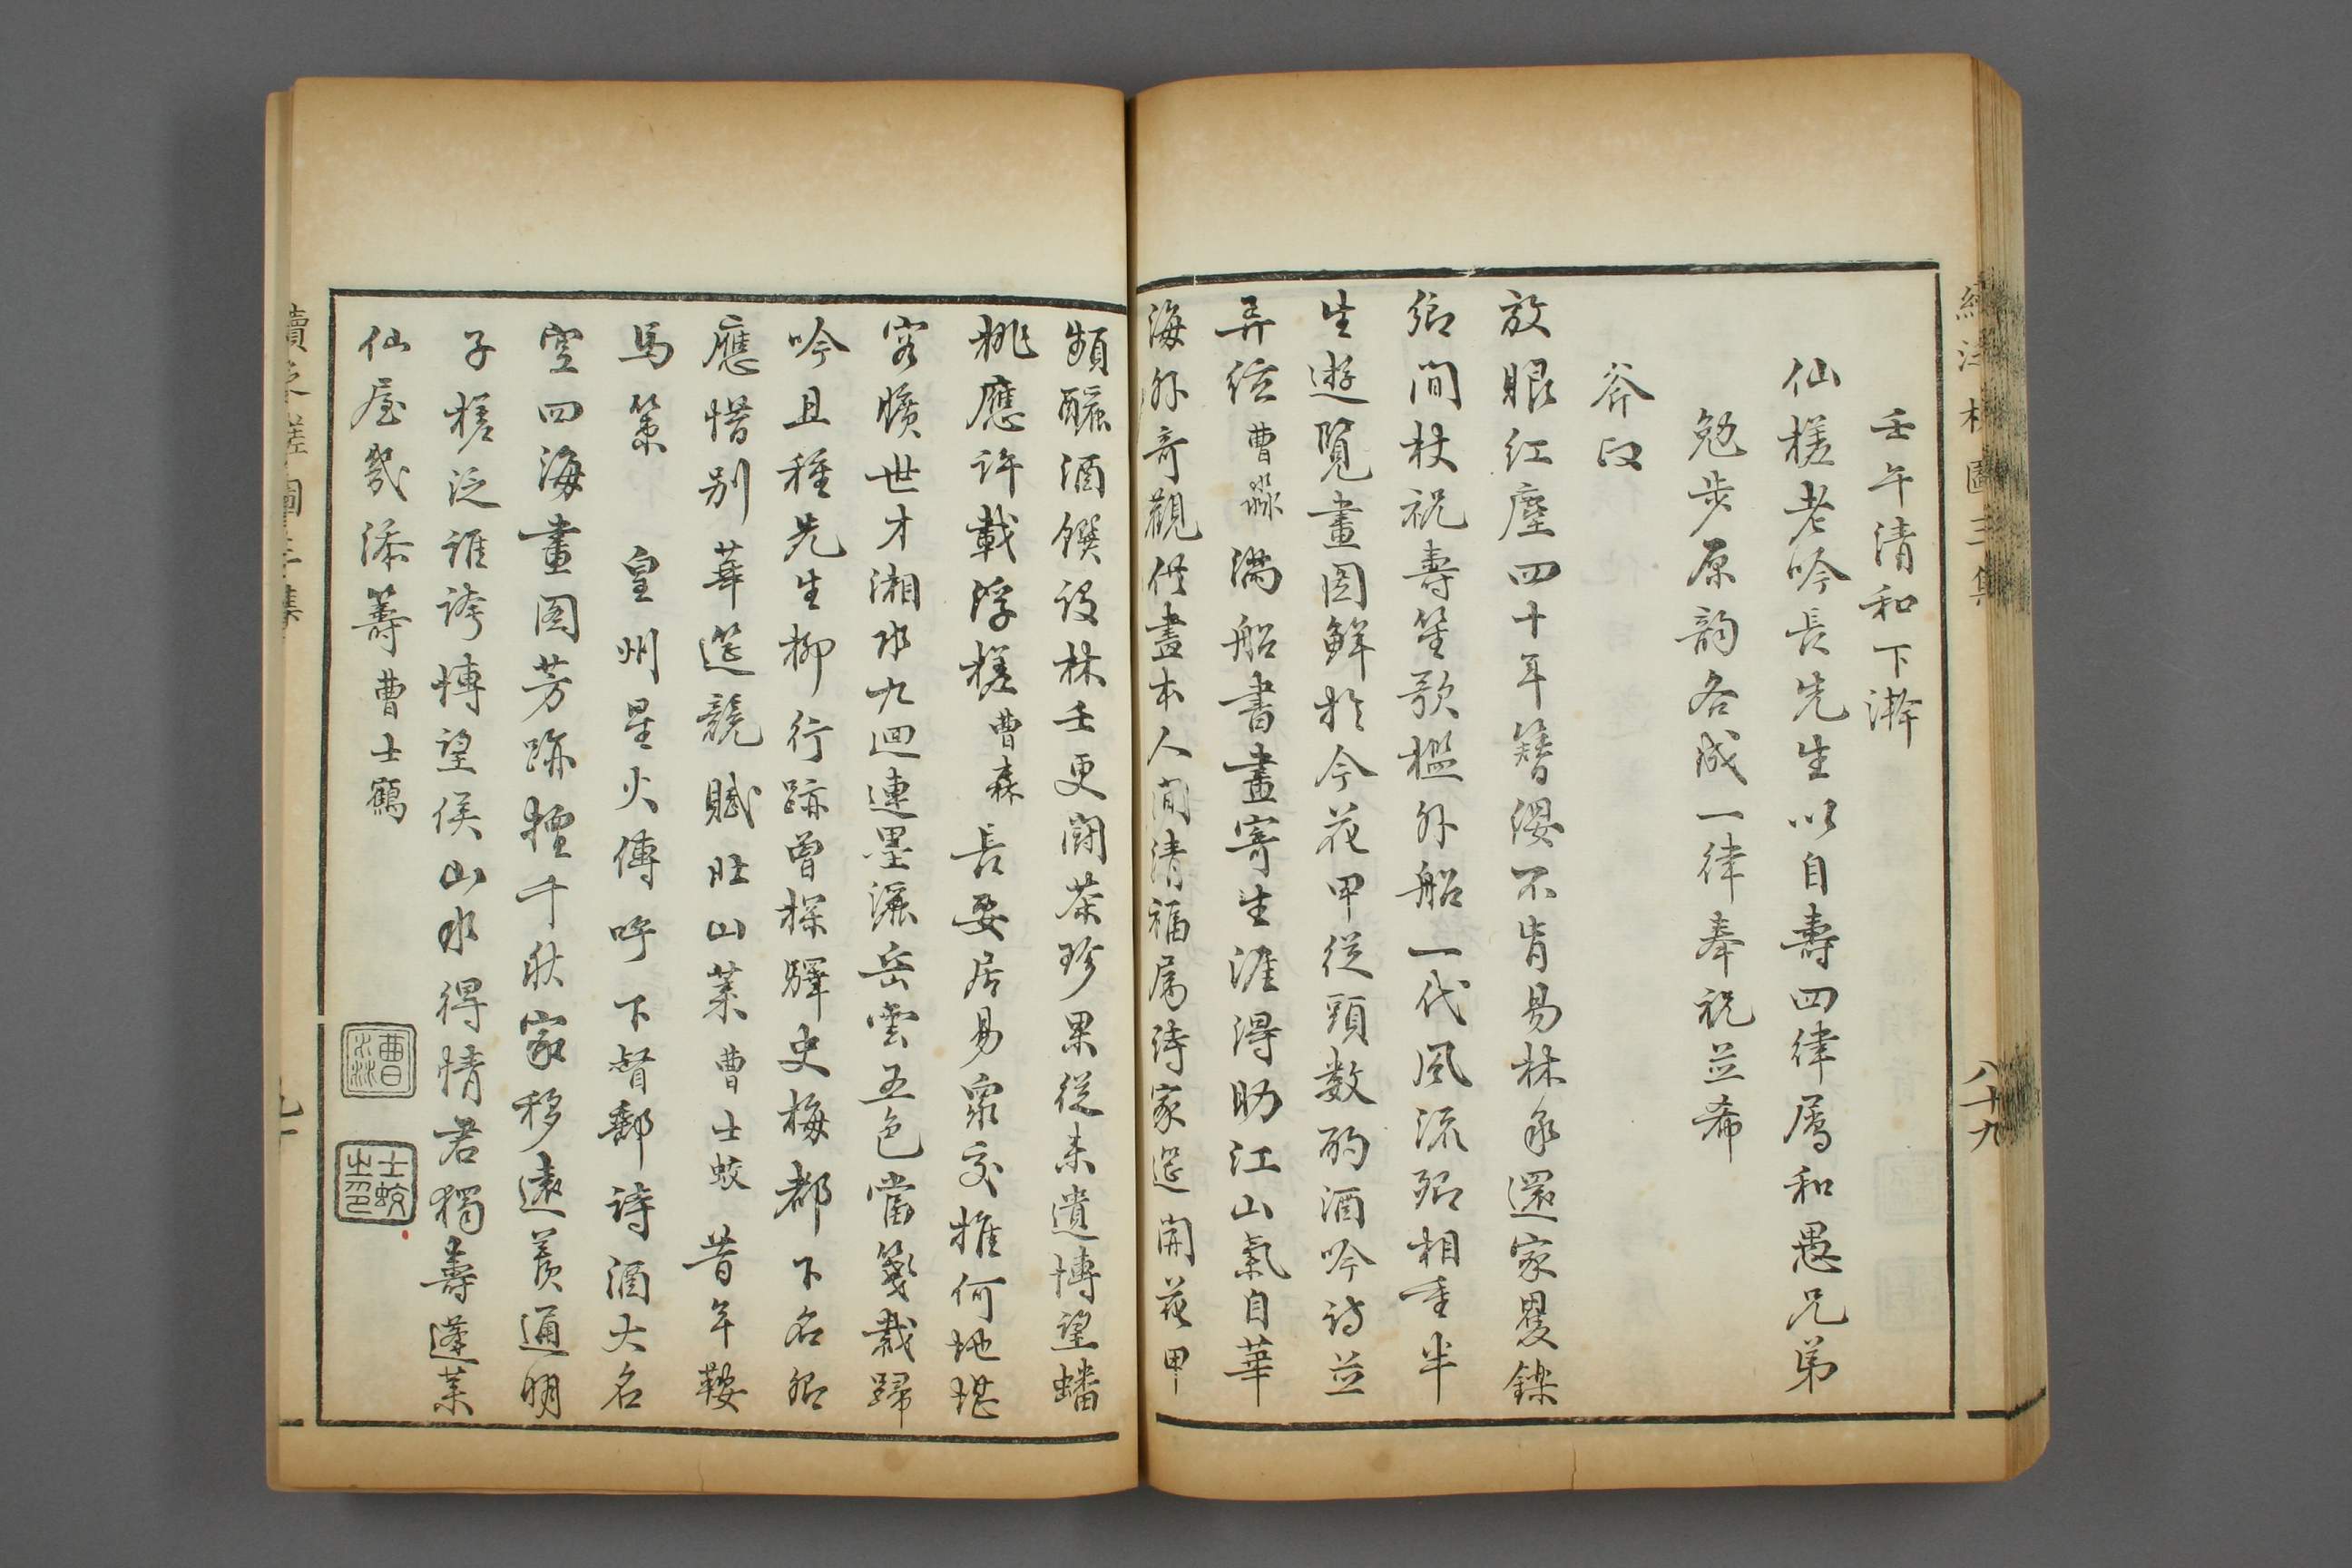 壬午清和下澣
仙槎老吟長先生以自壽四律屬和愚兄弟
勉步原韵各成一律奉祝並希
斧政
放眼紅塵四十年簪纓不肯易林泉還家矍鑠
鄉閒杖祝壽笙歌檻外船一代風流卿相重半
生遊覽畫圖鮮於今花甲從頭數酌酒吟詩並
弄絃曹淼滿船書畫寄生涯得助江山氣自華
海外奇觀供畫本人間清福屬詩家筵開花甲
頻釃酒饌設林壬更鬭茶珍果從未遺博望蟠
桃應許載浮槎曹森長安居易眾交推何地堪
容曠世才湘水九迴連墨灑岳雲五色當箋裁歸
吟且種先生柳行跡曾探驛史梅都下名卿
應惜別華筵競賦壯山萊曹士蛟昔年鞍
馬策皇州星火傳呼下督鄒詩酒大名
空四海畫圖芳跡擅千秋家移遠羨通明
子槎泛誰誇博望侯山水得情君獨壽蓬萊
仙屋幾添籌曹士鶴
曹淼
士蛟之印
續泛槎圖三集
八十九
續泛槎圖三集
九十